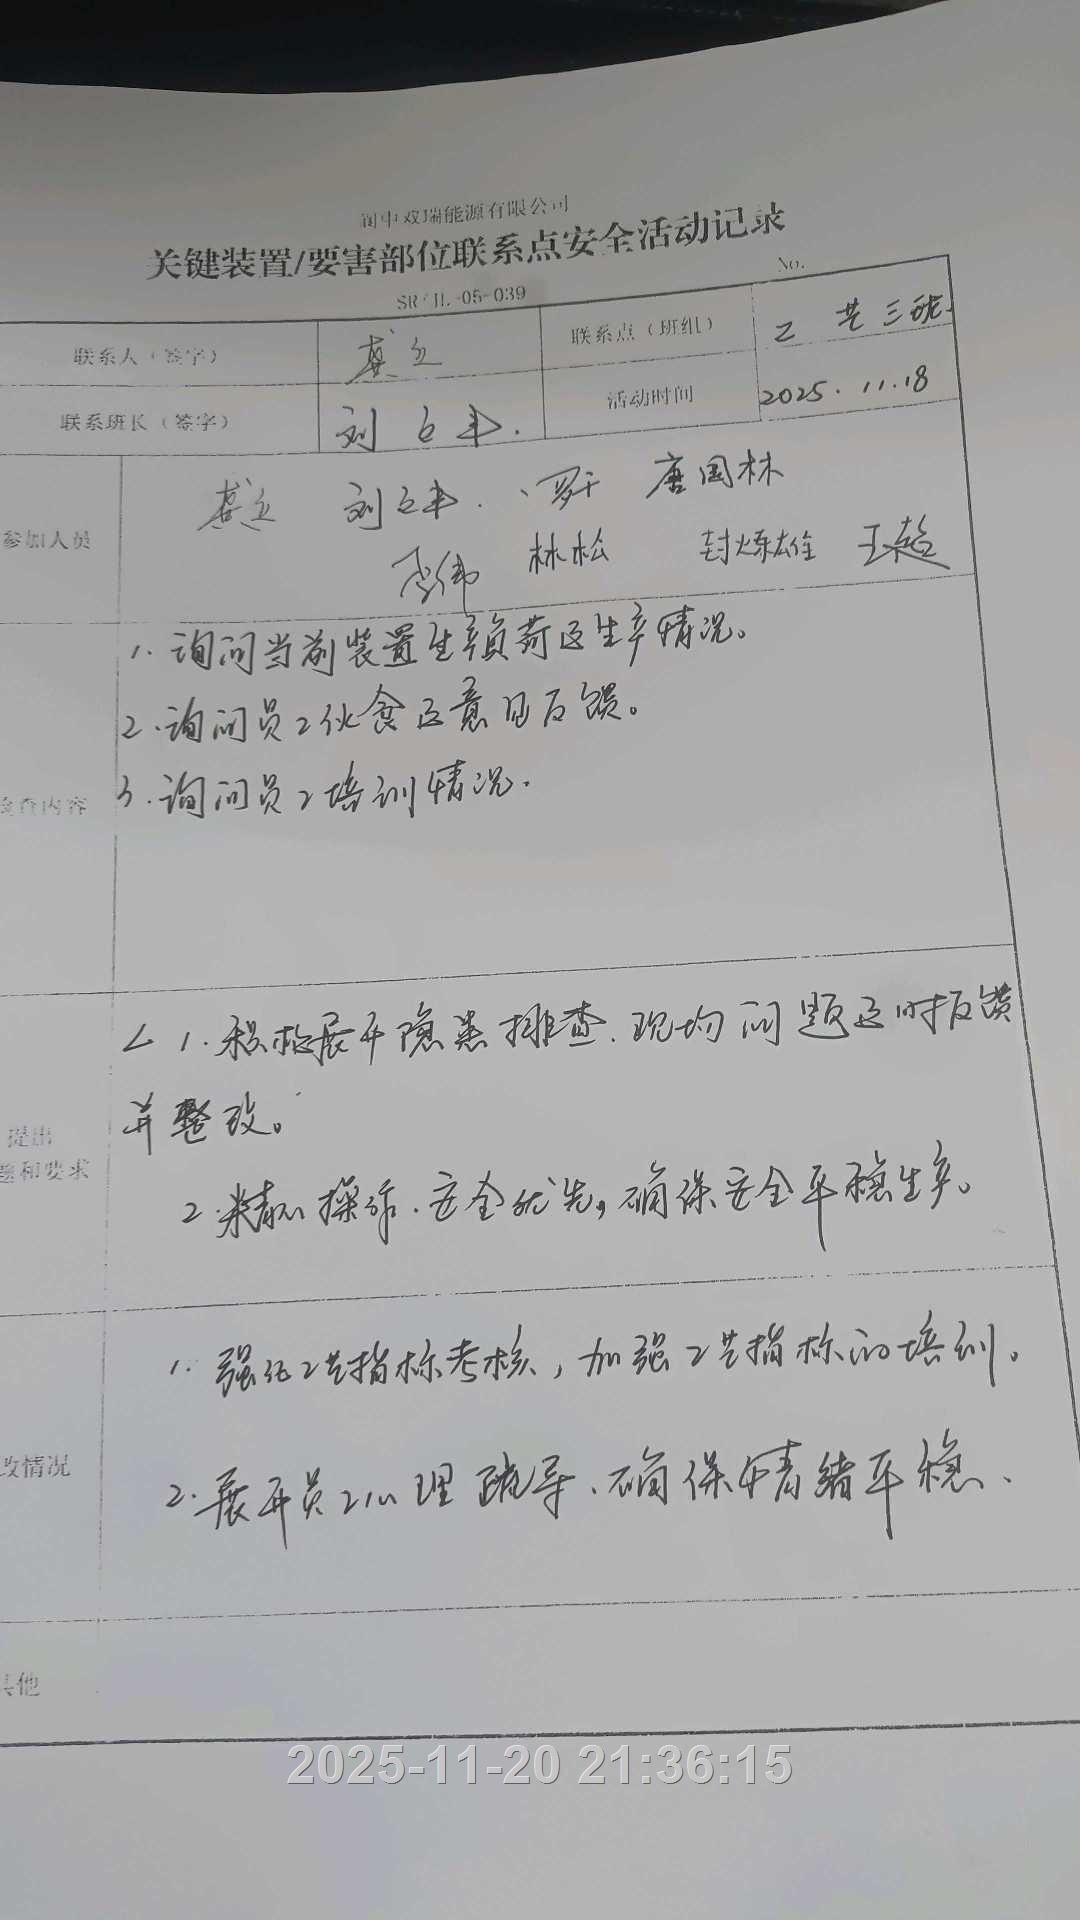 阆中双瑞能源有限公司
关键装置/要害部位联系点安全活动记录
SR/JL-05-039
No.
联系人（签字） 联系点（班组） 工艺三班
联系班长（签字） 刘 活动时间 2025.11.18
参加人员 刘 罗 唐国林
伟 林松 封炼雄 王超
检查内容
1.询问当前装置生产负荷及生产情况。
2.询问员工伙食及意见反馈。
3.询问员工培训情况.
提出
题和要求
1.积极展开隐患排查.现场问题及时反馈
并整改。
2.精心操作.安全优先,确保安全平稳生产。
改情况
1.强化工艺指标考核,加强工艺指标的培训。
2.展开员工心理疏导.确保情绪平稳、
其他
2025-11-20 21:36:15